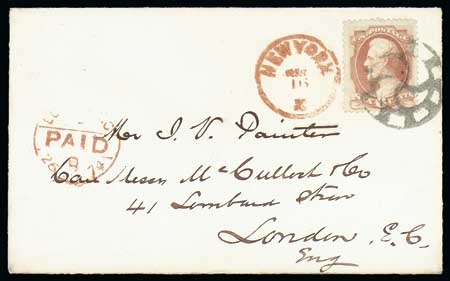 NEW YORK
16
X
PAID
26 74
Mr J. V. Painter
Care Messrs McCulloch & Co
41 Lombard Street
London, E.C.
Eng